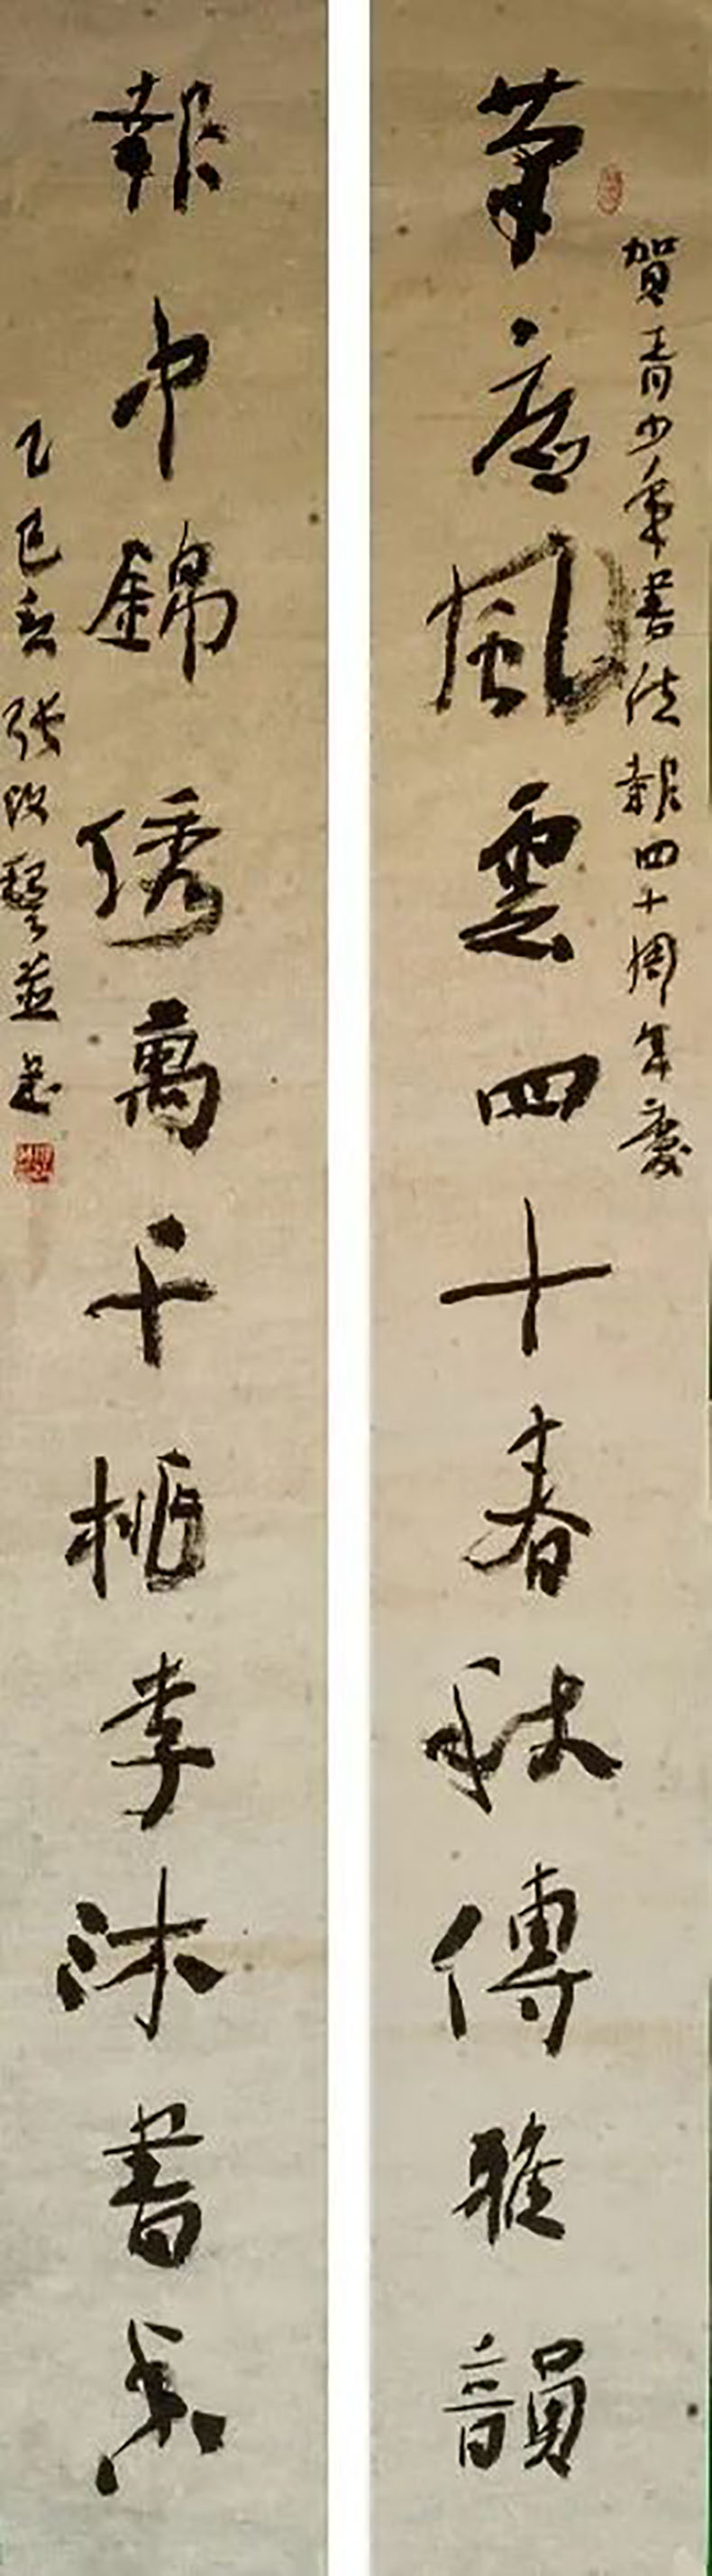 賀青少年書法報四十周年慶
筆底風雲四十春秋傳雅韻
報中錦綉萬千桃李沐書香
乙巳張改琴並